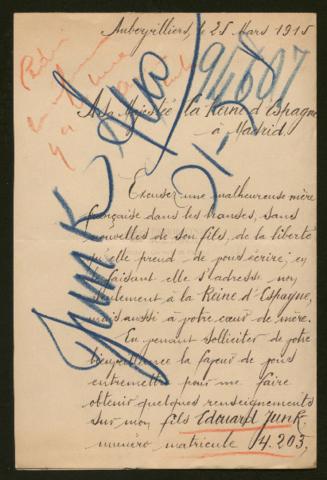 Aubervilliers, le 25 Mars 1915
94607
A Sa Majesté la Reine d'Espagne
à Madrid.
Junk
Excusez une malheureuse mère
française dans les transes, sans
nouvelles de son fils, de la liberté
qu'elle prend de vous écrire; en
le faisant elle s'adresse non
seulement à la Reine d'Espagne,
mais aussi à votre cœur de mère.
En venant solliciter de votre
bienveillance la faveur de vous
entremettre pour me faire
obtenir quelques renseignements
sur mon fils Edouard Junk.
numéro matricule 14.203,